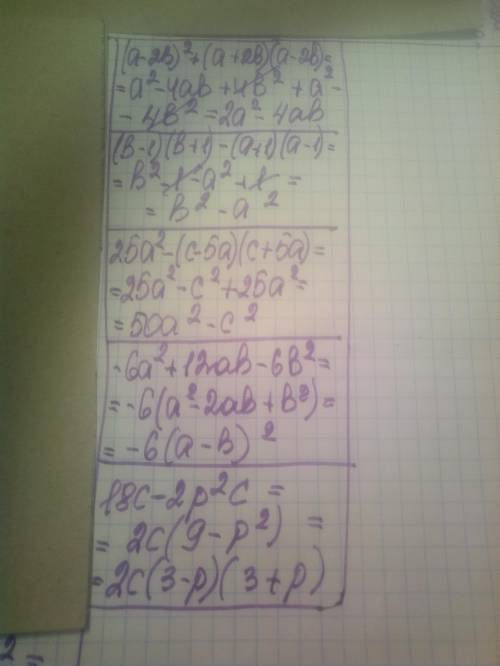 (a-2b)²+(a+2b)(a-2b)=
=a²-4ab+4b²+a²-
-4b²=2a²-4ab
(b-1)(b+1)-(a+1)(a-1)=
=b²-1-a²+1=
=b²-a²
25a²-(c-5a)(c+5a)=
=25a²-c²+25a²=
=50a²-c²
-6a²+12ab-6b²=
=-6(a²-2ab+b²)=
=-6(a-b)²
18c-2p²c=
=2c(9-p²)=
=2c(3-p)(3+p)
2=